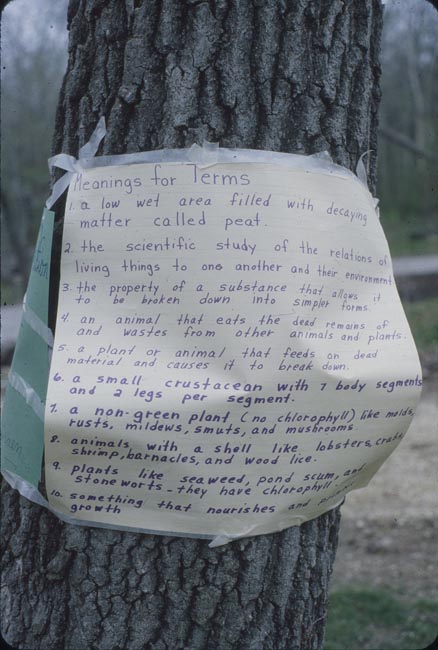 Meanings for Terms
1. a low wet area filled with decaying
matter called peat.
2. the scientific study of the relations of
living things to one another and their environment
3. the property of a substance that allows it
to be broken down into simpler forms.
4. an animal that eats the dead remains of
and wastes from other animals and plants.
5. a plant or animal that feeds on dead
material and causes it to break down.
6. a small crustacean with 7 body segments
and 2 legs per segment.
7. a non-green plant (no chlorophyll) like molds,
rusts, mildews, smuts, and mushrooms.
8. animals with a shell like lobsters, crabs,
shrimp, barnacles, and wood lice.
9. plants like seaweed, pond scum, and
stoneworts - they have chlorophyll.
10. something that nourishes and
growth